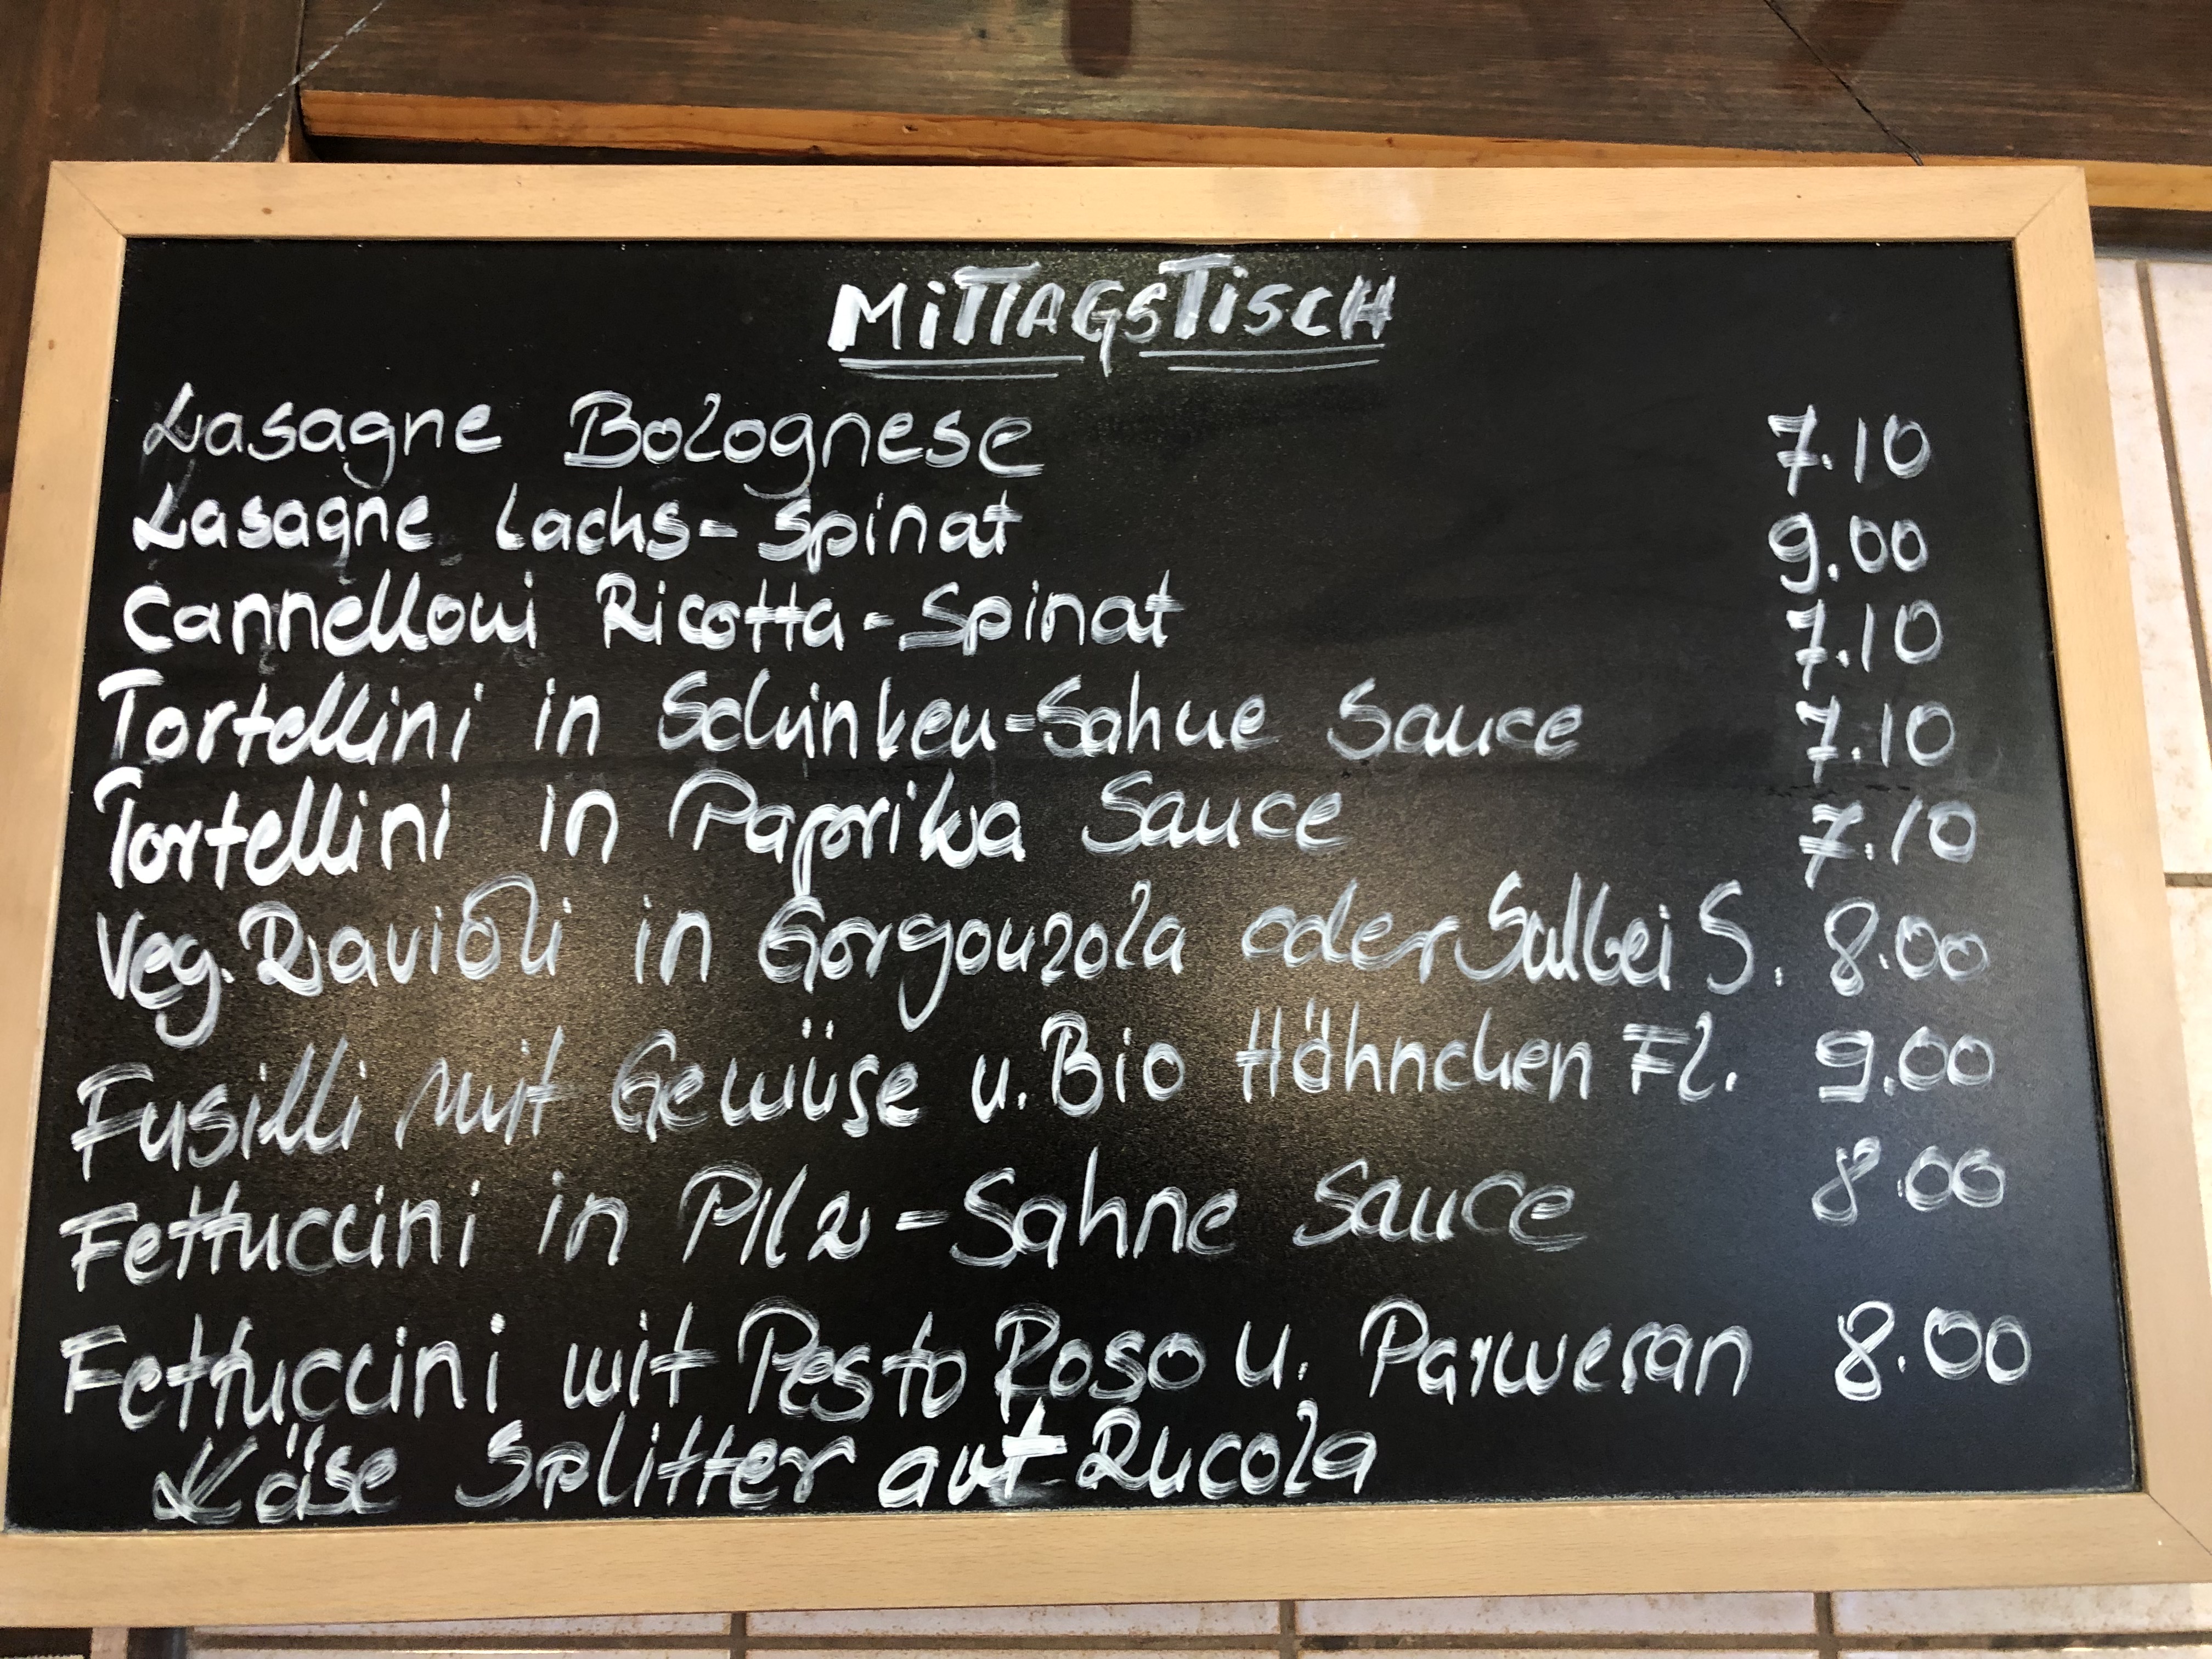 MiTTAGSTiSCH
Lasagne Bolognese 7.10
Lasagne Lachs-Spinat 9.00
Cannelloni Ricotta-Spinat 7.10
Tortellini in Schinken-Sahne Sauce 7.10
Tortellini in Paprika Sauce 7.10
Veg. Ravioli in Gorgonzola oder Salbei S. 8.00
Fusilli mit Gemüse u. Bio Hähnchen Fl. 9.00
Fettuccini in Pilz-Sahne Sauce 8.00
Fettuccini mit Pesto Roso u. Parmesan 8.00
Käse Splitter auf Rucola